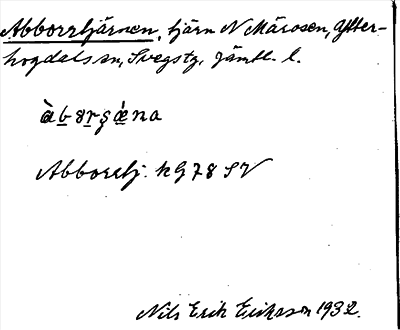 Abborrtjärnen, tjärn N Mårosen, Ytter-
hogdals sn, Svegs tg, Jämtl. l.
àbərʂǽna
Abborrtj. kG 78 SV
Nils Erik Eriksson 1932.